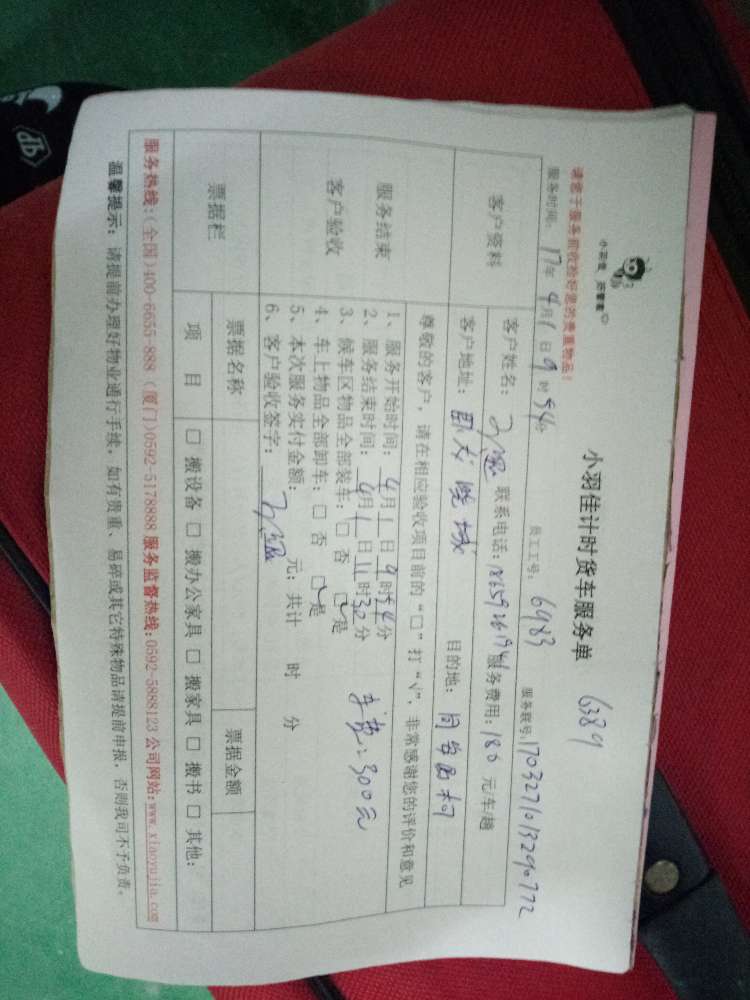 小羽佳计时货车服务单 6389
小羽佳 容管家
请您于服务前收捡好您的贵重物品！
服务时间：17年4月1日9时54分 员工工号：6983 服务联号：170327101329077 2
客户资料
客户姓名： 联系电话： 服务费用：180元/车趟
客户地址： 目的地：
尊敬的客户，请在相应验收项目前的“□”打“√”，非常感谢您的评价和意见
服务结束
客户验收
1、服务开始时间：4月1日9时54分
2、服务结束时间：4月1日11时32分
3、候车区物品全部装车：□ 否 ☑是
4、车上物品全部卸车：□ 否 ☑是
车费：300元
5、本次服务实付金额： 元；共计 时 分
6、客户验收签字：
票据栏
票据名称 票据金额
项 目 □ 搬设备 □ 搬办公家具 □ 搬家具 □ 搬书 □ 其他：
服务热线：(全国)400-6655-888 (厦门)0592-5178888 服务监督热线:0592-5888123 公司网站:www.xiaoyujia.com
温馨提示：请提前办理好物业通行手续，如有贵重、易碎或其它特殊物品请提前申报，否则我司不予负责。